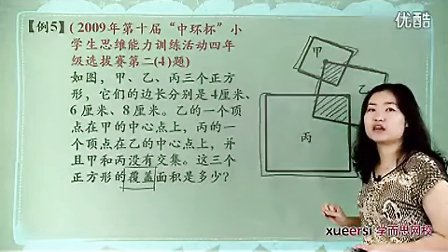 优酷
【例5】(2009年第十届“中环杯”小
学生思维能力训练活动四年
级选拔赛第二(4)题)
如图，甲、乙、丙三个正方
形，它们的边长分别是4厘米、
6厘米、8厘米。乙的一个顶
点在甲的中心点上，丙的一
个顶点在乙的中心点上，并
且甲和丙没有交集。这三个
正方形的覆盖面积是多少？
甲
乙
丙
xueersi 学而思网校